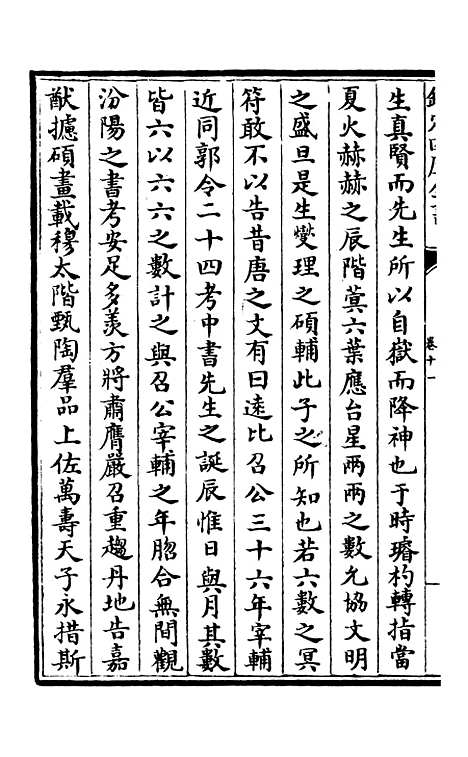 卷十一
生真賢而先生所以自嶽而降神也于時璿杓轉指當
夏火赫赫之辰階蓂六葉應台星兩兩之數允協文明
之盛旦是生燮理之碩輔此子之所知也若六數之冥
符敢不以告昔唐之文有曰遠比召公三十六年宰輔
近同郭令二十四考中書先生之誕辰惟日與月其數
皆六以六六之數計之與召公宰輔之年脗合無間觀
汾陽之書考安足多羨方將肅膺嚴召重趨丹地告嘉
猷攄碩畫載穆太階甄陶羣品上佐萬壽天子永措斯